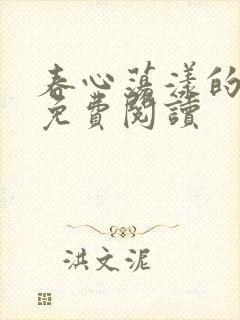 春心荡漾的
免費閱讀
洪文泥